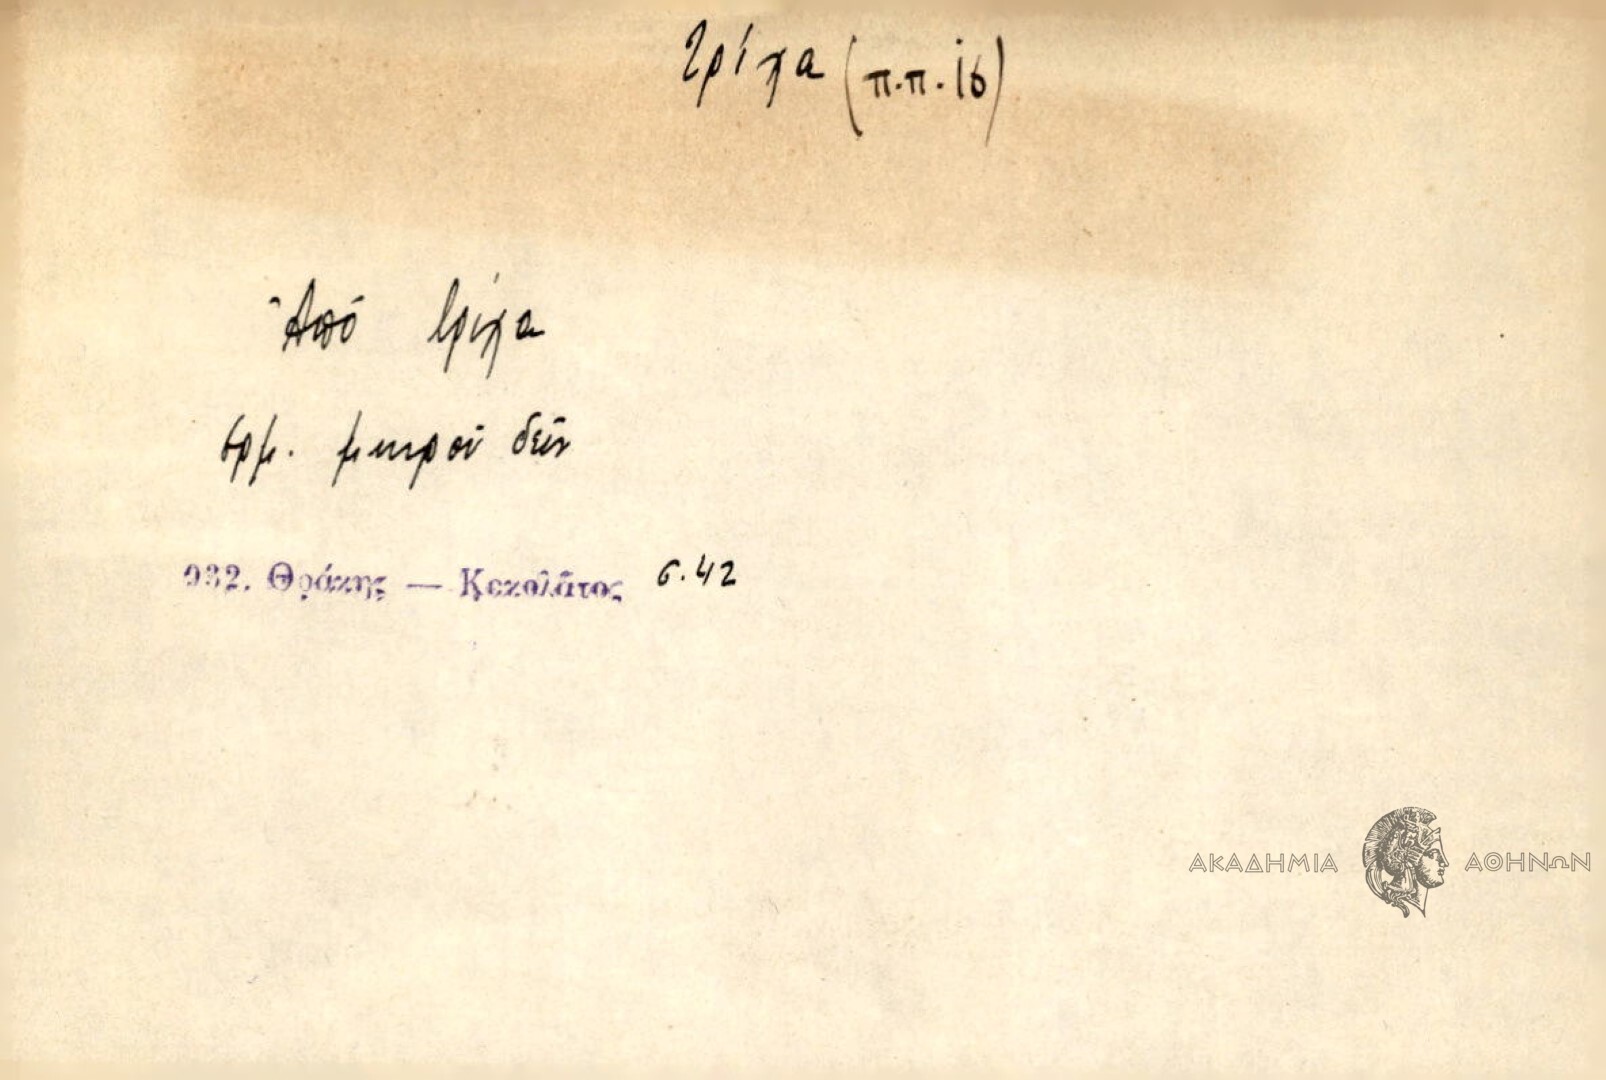 τρίχα (π.π. 16)
Ἀπό τρίχα
ἑρμ. μικροῦ δεῖν
932. Θράκης — Κεκολᾶτος σ. 42
ΑΚΑΔΗΜΙΑ ΑΘΗΝΩΝ